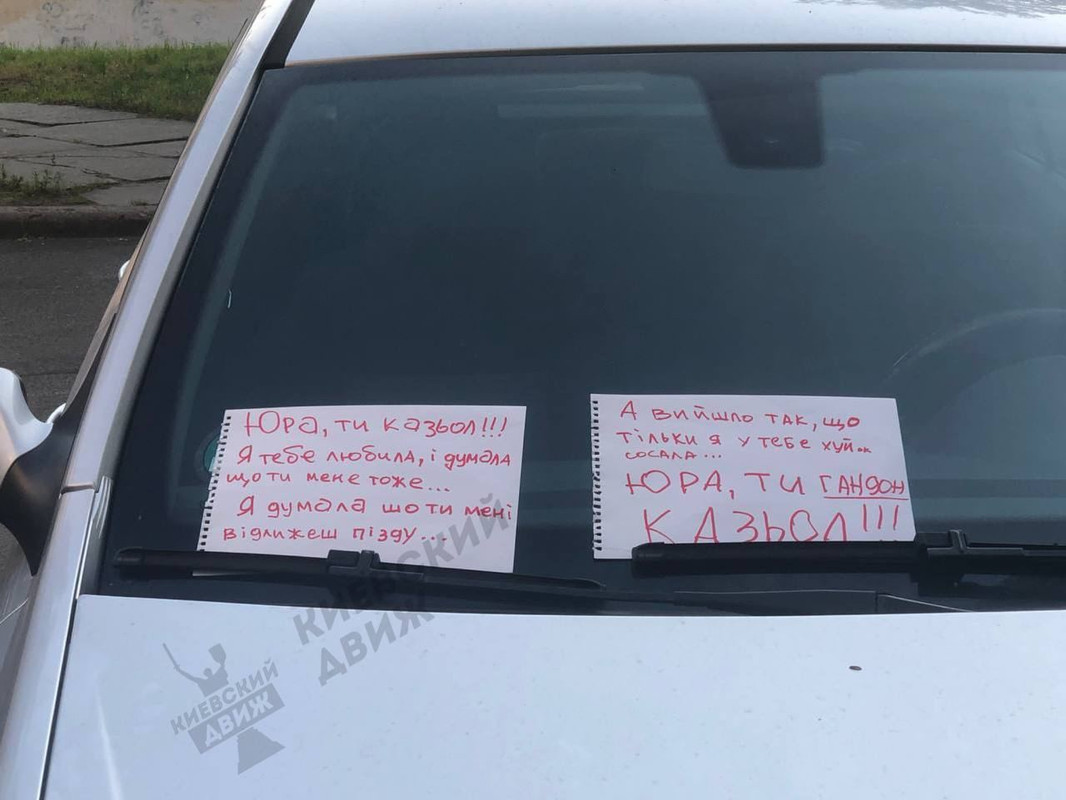 Юра, ти казьол!!!
Я тебе любила, і думала
що ти мене тоже...
Я думала шо ти мені
відлижеш пізду...
А вийшло так, що
тільки я у тебе хуйок
сосала...
ЮРА, ТИ ГАНДОН
КАЗЬОЛ!!!
КИЕВСКИЙ
ДВИЖ
КИЕВСКИЙ
ДВИЖ